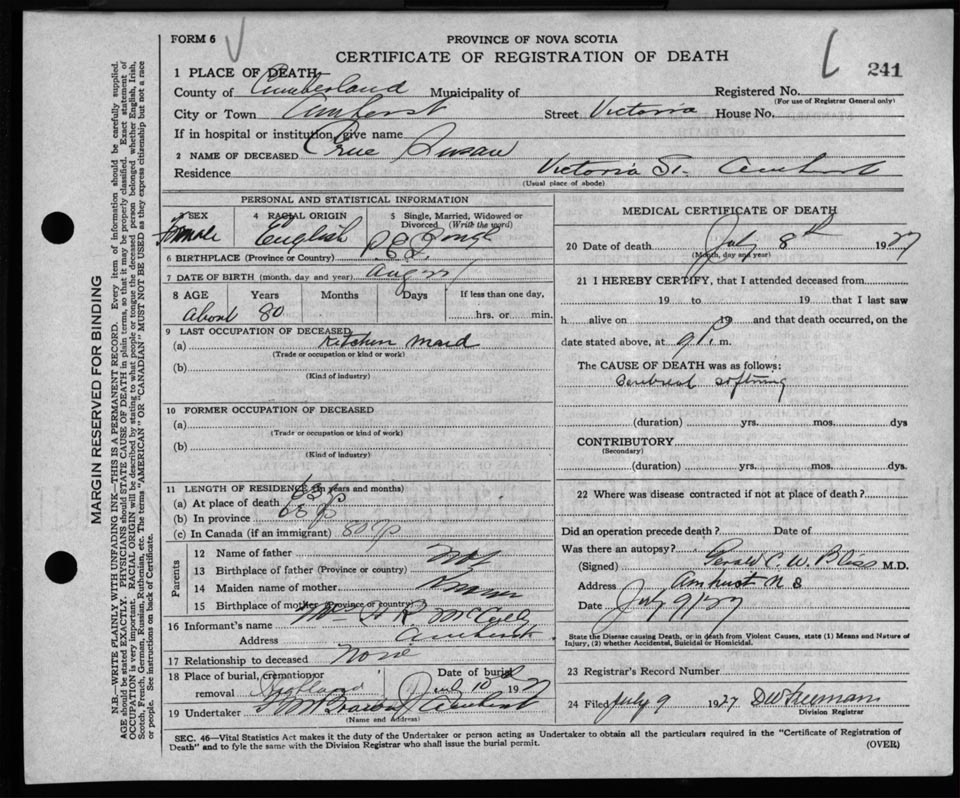 FORM 6
PROVINCE OF NOVA SCOTIA
CERTIFICATE OF REGISTRATION OF DEATH
241
1 PLACE OF DEATH
County of Cumberland Municipality of Registered No.
(For use of Registrar General only)
City or Town Amherst Street Victoria House No.
If in hospital or institution, give name
2 NAME OF DECEASED Crue Susan
Residence Victoria St. Amherst
(Usual place of abode)
PERSONAL AND STATISTICAL INFORMATION
3 SEX Female
4 RACIAL ORIGIN English
5 Single, Married, Widowed or Divorced (Write the word) Single
6 BIRTHPLACE (Province or Country) P.E.I.
7 DATE OF BIRTH (month, day and year)
8 AGE Years Months Days If less than one day,
About 80 hrs. or min.
9 LAST OCCUPATION OF DECEASED
(a) Kitchen Maid
(Trade or occupation or kind or work)
(b)
(Kind of industry)
10 FORMER OCCUPATION OF DECEASED
(a)
(Trade or occupation or kind of work)
(b)
(Kind of industry)
11 LENGTH OF RESIDENCE (in years and months)
(a) At place of death
(b) In province
(c) In Canada (if an immigrant) 80
Parents
12 Name of father Not
13 Birthplace of father (Province or country)
14 Maiden name of mother Known
15 Birthplace of mother (Province or country)
16 Informant's name Mrs
Address Amherst
17 Relationship to deceased None
18 Place of burial, cremation or removal Date of burial July 10 1927
19 Undertaker Amherst
(Name and Address)
MEDICAL CERTIFICATE OF DEATH
20 Date of death July 8th 1927
(Month, day and year)
21 I HEREBY CERTIFY, that I attended deceased from
19 to 19 that I last saw
h alive on 19 and that death occurred, on the
date stated above, at 9 P. m.
The CAUSE OF DEATH was as follows:
Cerebral softning
(duration) yrs. mos. dys
CONTRIBUTORY
(Secondary)
(duration) yrs. mos. dys.
22 Where was disease contracted if not at place of death?
Did an operation precede death? Date of
Was there an autopsy?
(Signed) Gerald C. W. Bliss M.D.
Address Amherst N S
Date July 9/27
State the Disease causing Death, or in death from Violent Causes, state (1) Means and Nature of
Injury, (2) whether Accidental, Suicidal or Homicidal.
23 Registrar's Record Number
24 Filed July 9 1927 D W Freeman
Division Registrar
SEC. 46—Vital Statistics Act makes it the duty of the Undertaker or person acting as Undertaker to obtain all the particulars required in the "Certificate of Registration of
Death" and to fyle the same with the Division Registrar who shall issue the burial permit.
(OVER)
MARGIN RESERVED FOR BINDING
N.B.—WRITE PLAINLY WITH UNFADING INK—THIS IS A PERMANENT RECORD. Every item of information should be carefully supplied.
AGE should be stated EXACTLY. PHYSICIANS should STATE CAUSE OF DEATH in plain terms, so that it may be properly classified. Exact statement of
OCCUPATION is very important. RACIAL ORIGIN will be described by stating to what people or tongue the deceased person belonged whether English, Irish,
Scotch, French, German, Russian, Ruthenian, etc. The terms "AMERICAN" OR "CANADIAN" MUST NOT BE USED as they express citizenship but not a race
or people. See instructions on back of Certificate.